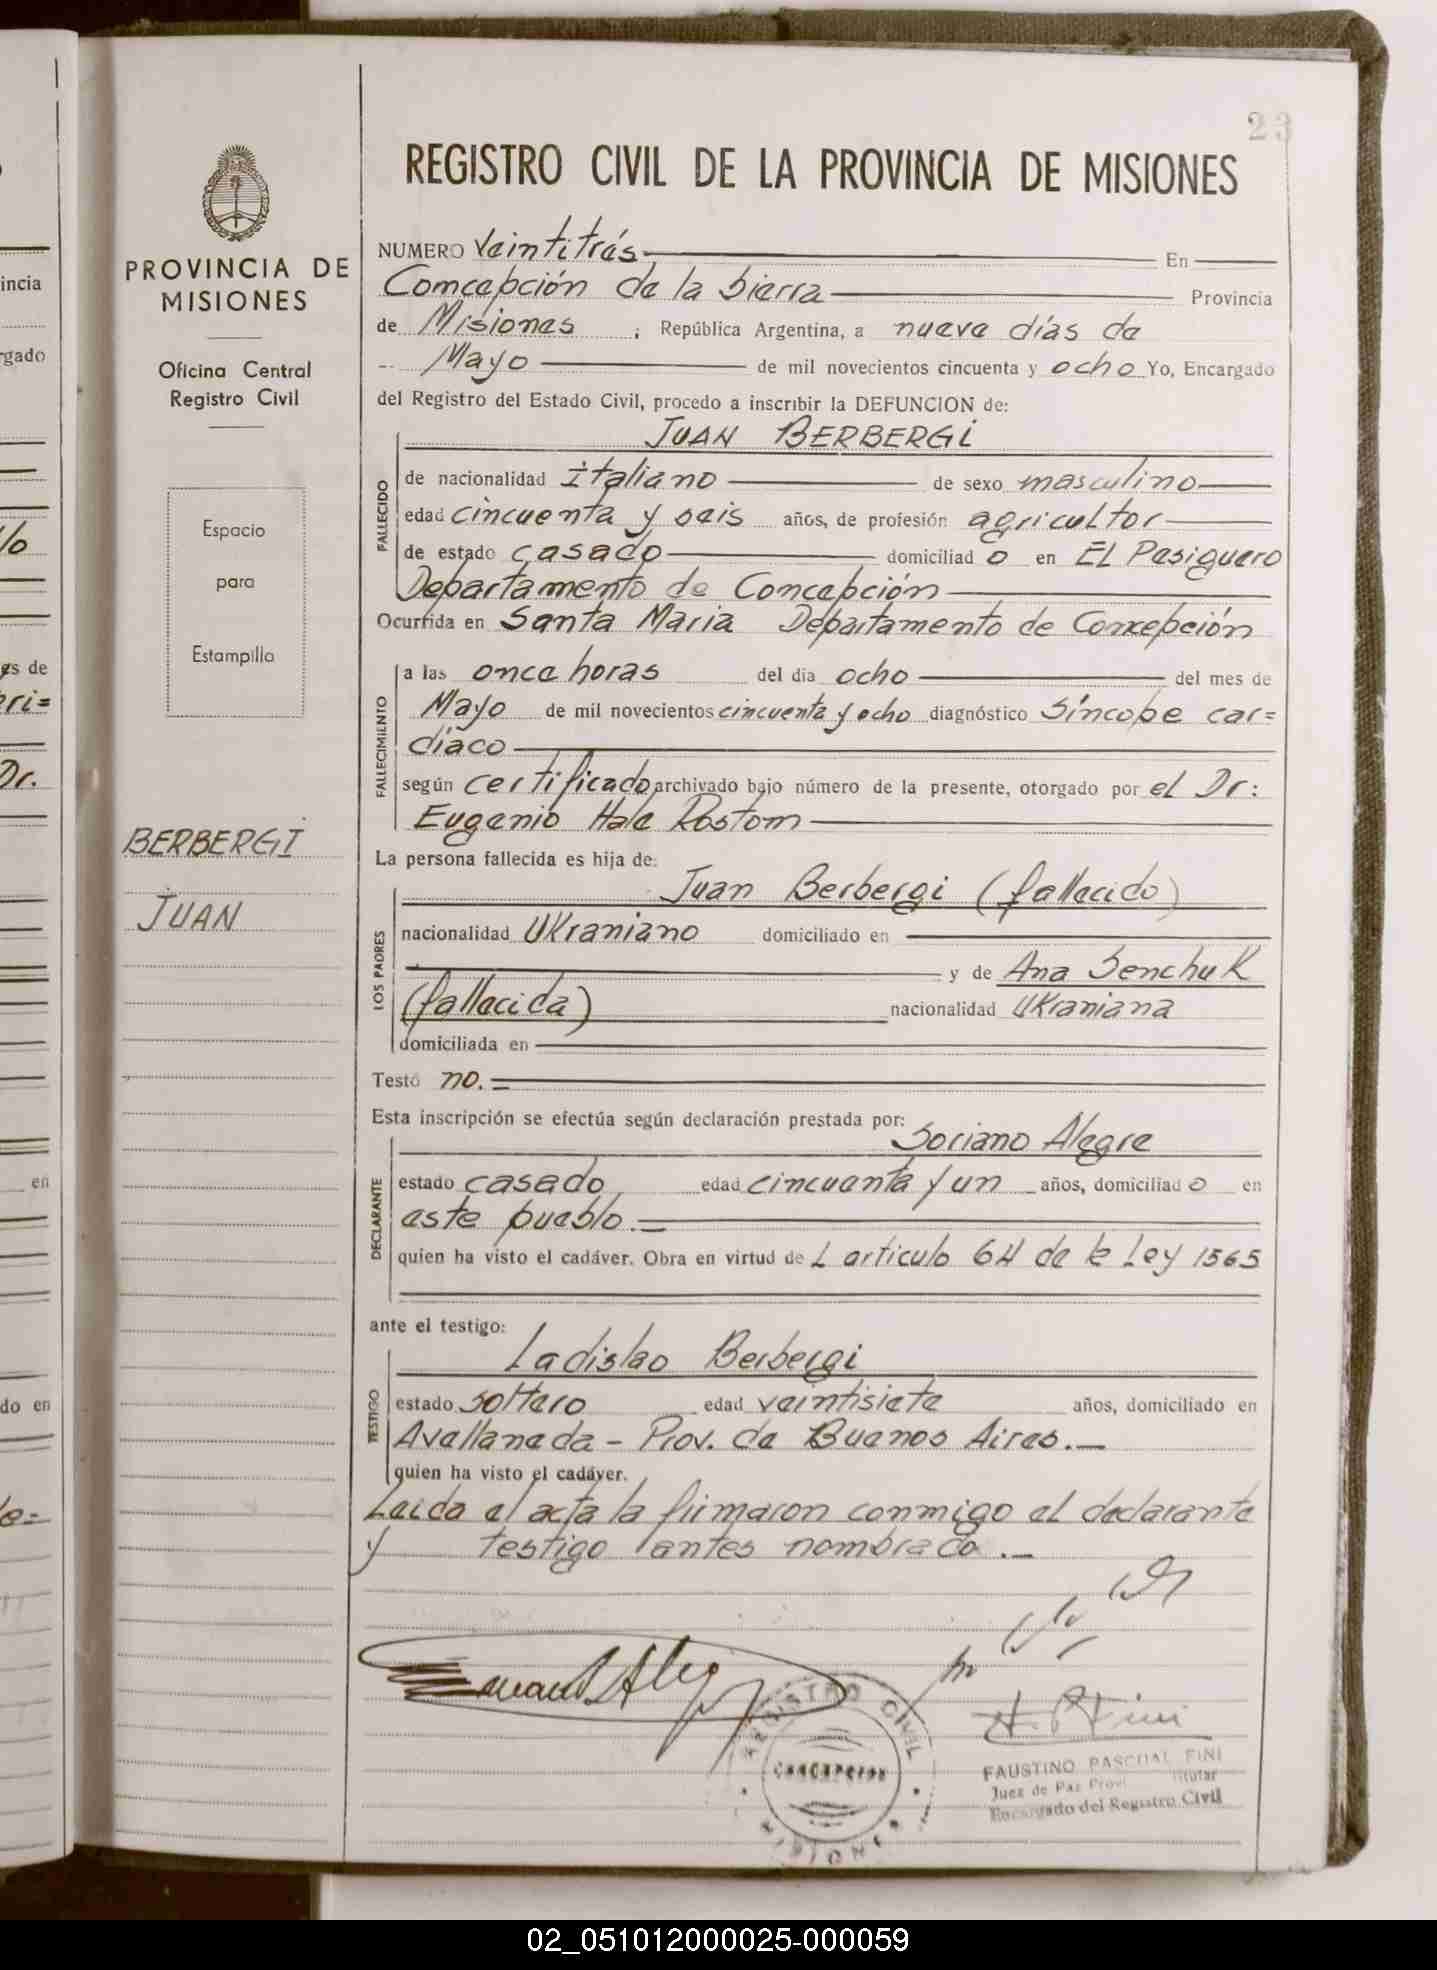 23
REGISTRO CIVIL DE LA PROVINCIA DE MISIONES
PROVINCIA DE
MISIONES
Oficina Central
Registro Civil
Espacio
para
Estampilla
BERBERGI
JUAN
NUMERO Veintitrés En
Concepción de la Sierra Provincia
de Misiones ; República Argentina, a nueve días de
Mayo de mil novecientos cincuenta y ocho Yo, Encargado
del Registro del Estado Civil, procedo a inscribir la DEFUNCION de:
JUAN BERBERGI
FALLECIDO
de nacionalidad italiano de sexo masculino
edad cincuenta y seis años, de profesión agricultor
de estado casado domiciliad o en EL Pesiguero
Departamento de Concepción
Ocurrida en Santa Maria Departamento de Concepción
FALLECIMIENTO
a las once horas del dia ocho del mes de
Mayo de mil novecientos cincuenta y ocho diagnóstico Síncope car=
díaco
según certificado archivado bajo número de la presente, otorgado por el Dr:
Eugenio Hale Rostom
La persona fallecida es hija de:
Juan Berbergi (fallecido)
LOS PADRES
nacionalidad Ukraniano domiciliado en
y de Ana Senchuk
(fallecida) nacionalidad Ukraniana
domiciliada en
Testó no. =
Esta inscripción se efectúa según declaración prestada por:
Soriano Alegre
DECLARANTE
estado casado edad cincuenta y un años, domiciliad o en
este pueblo. —
quien ha visto el cadáver. Obra en virtud de L articulo 64 de la Ley 1565
ante el testigo:
Ladislao Berbergi
TESTIGO
estado soltero edad veintisiete años, domiciliado en
Avellaneda - Prov. de Buenos Aires. —
quien ha visto el cadáver.
Leida el acta la firmaron conmigo el declarante
y testigo antes nombrado. —
REGISTRO CIVIL
FAUSTINO PASCUAL FINI
Juez de Paz Titular
Encargado del Registro Civil
02_051012000025-000059